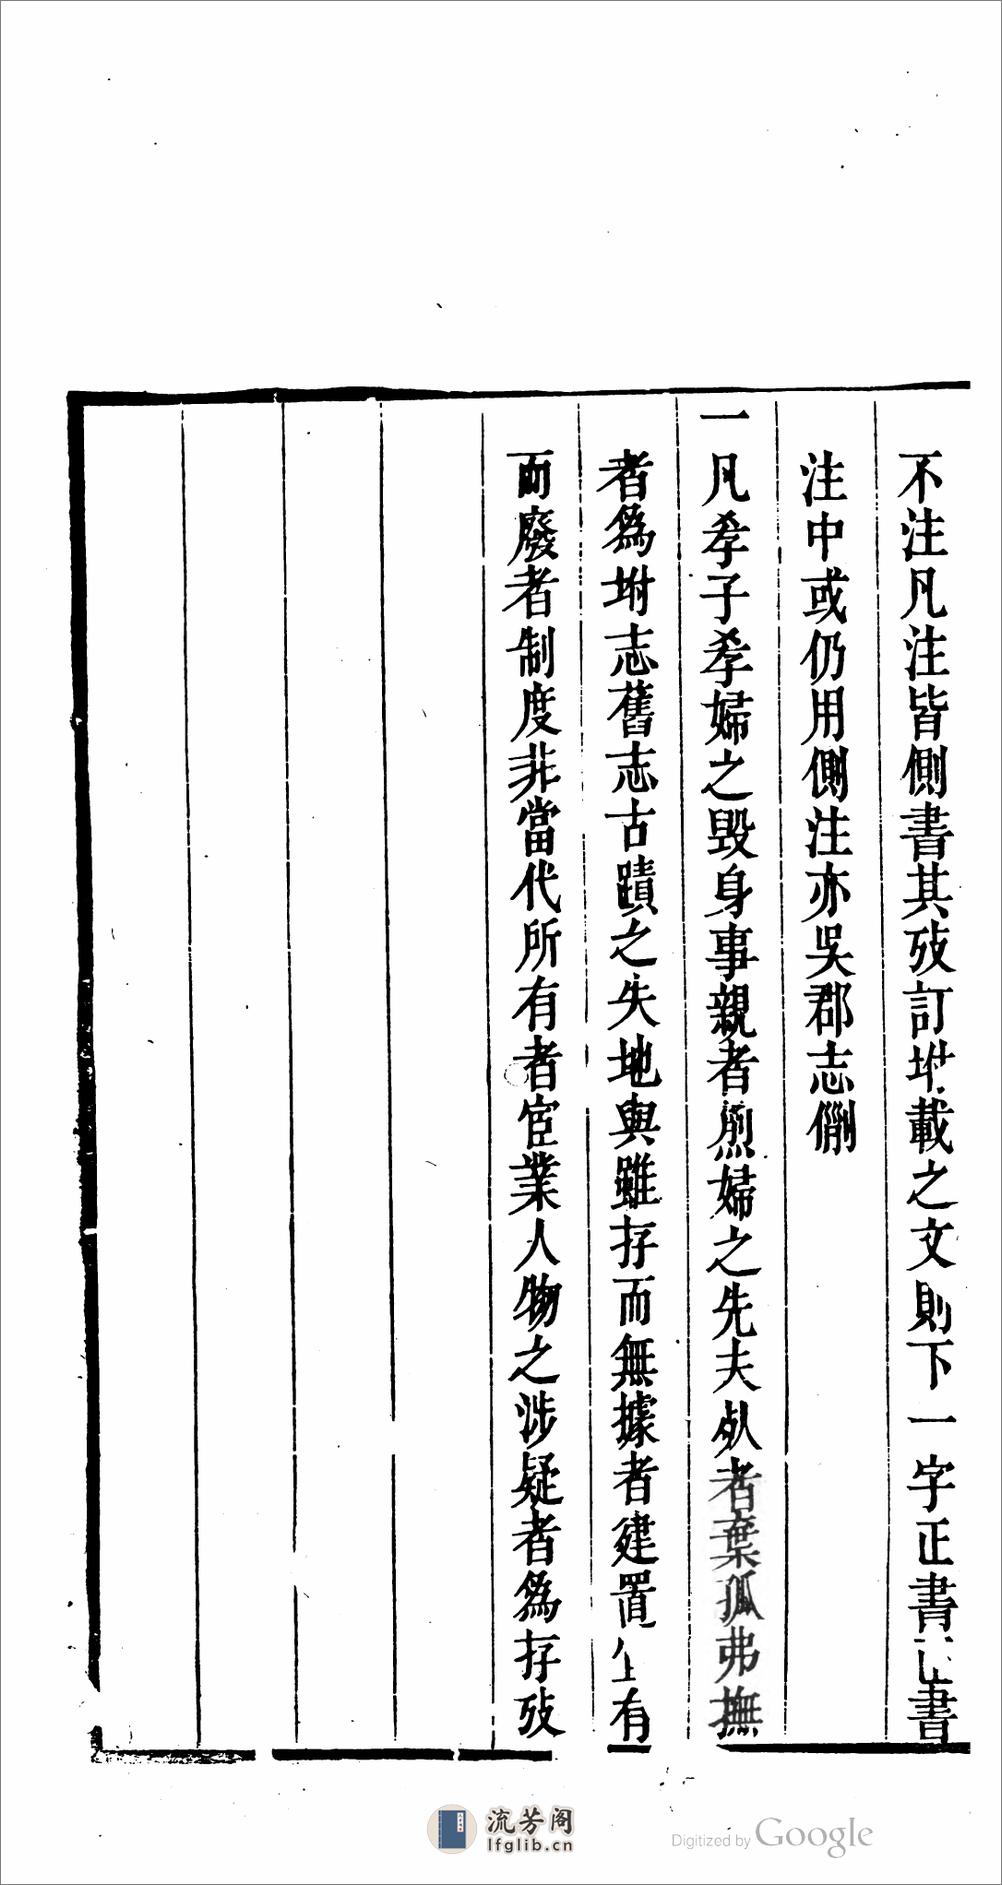 不注凡注皆側書其攷訂坿載之文則下一字正書正書
注中或仍用側注亦吳郡志例
一凡孝子孝婦之毀身事親者烈婦之先夫𣦸者棄孤弗撫
者爲坿志舊志古蹟之失地與雖存而無據者建置有
而廢者制度非當代所有者宦業人物之涉疑者爲存攷
流芳阁
lfglib.cn
Digitized by Google